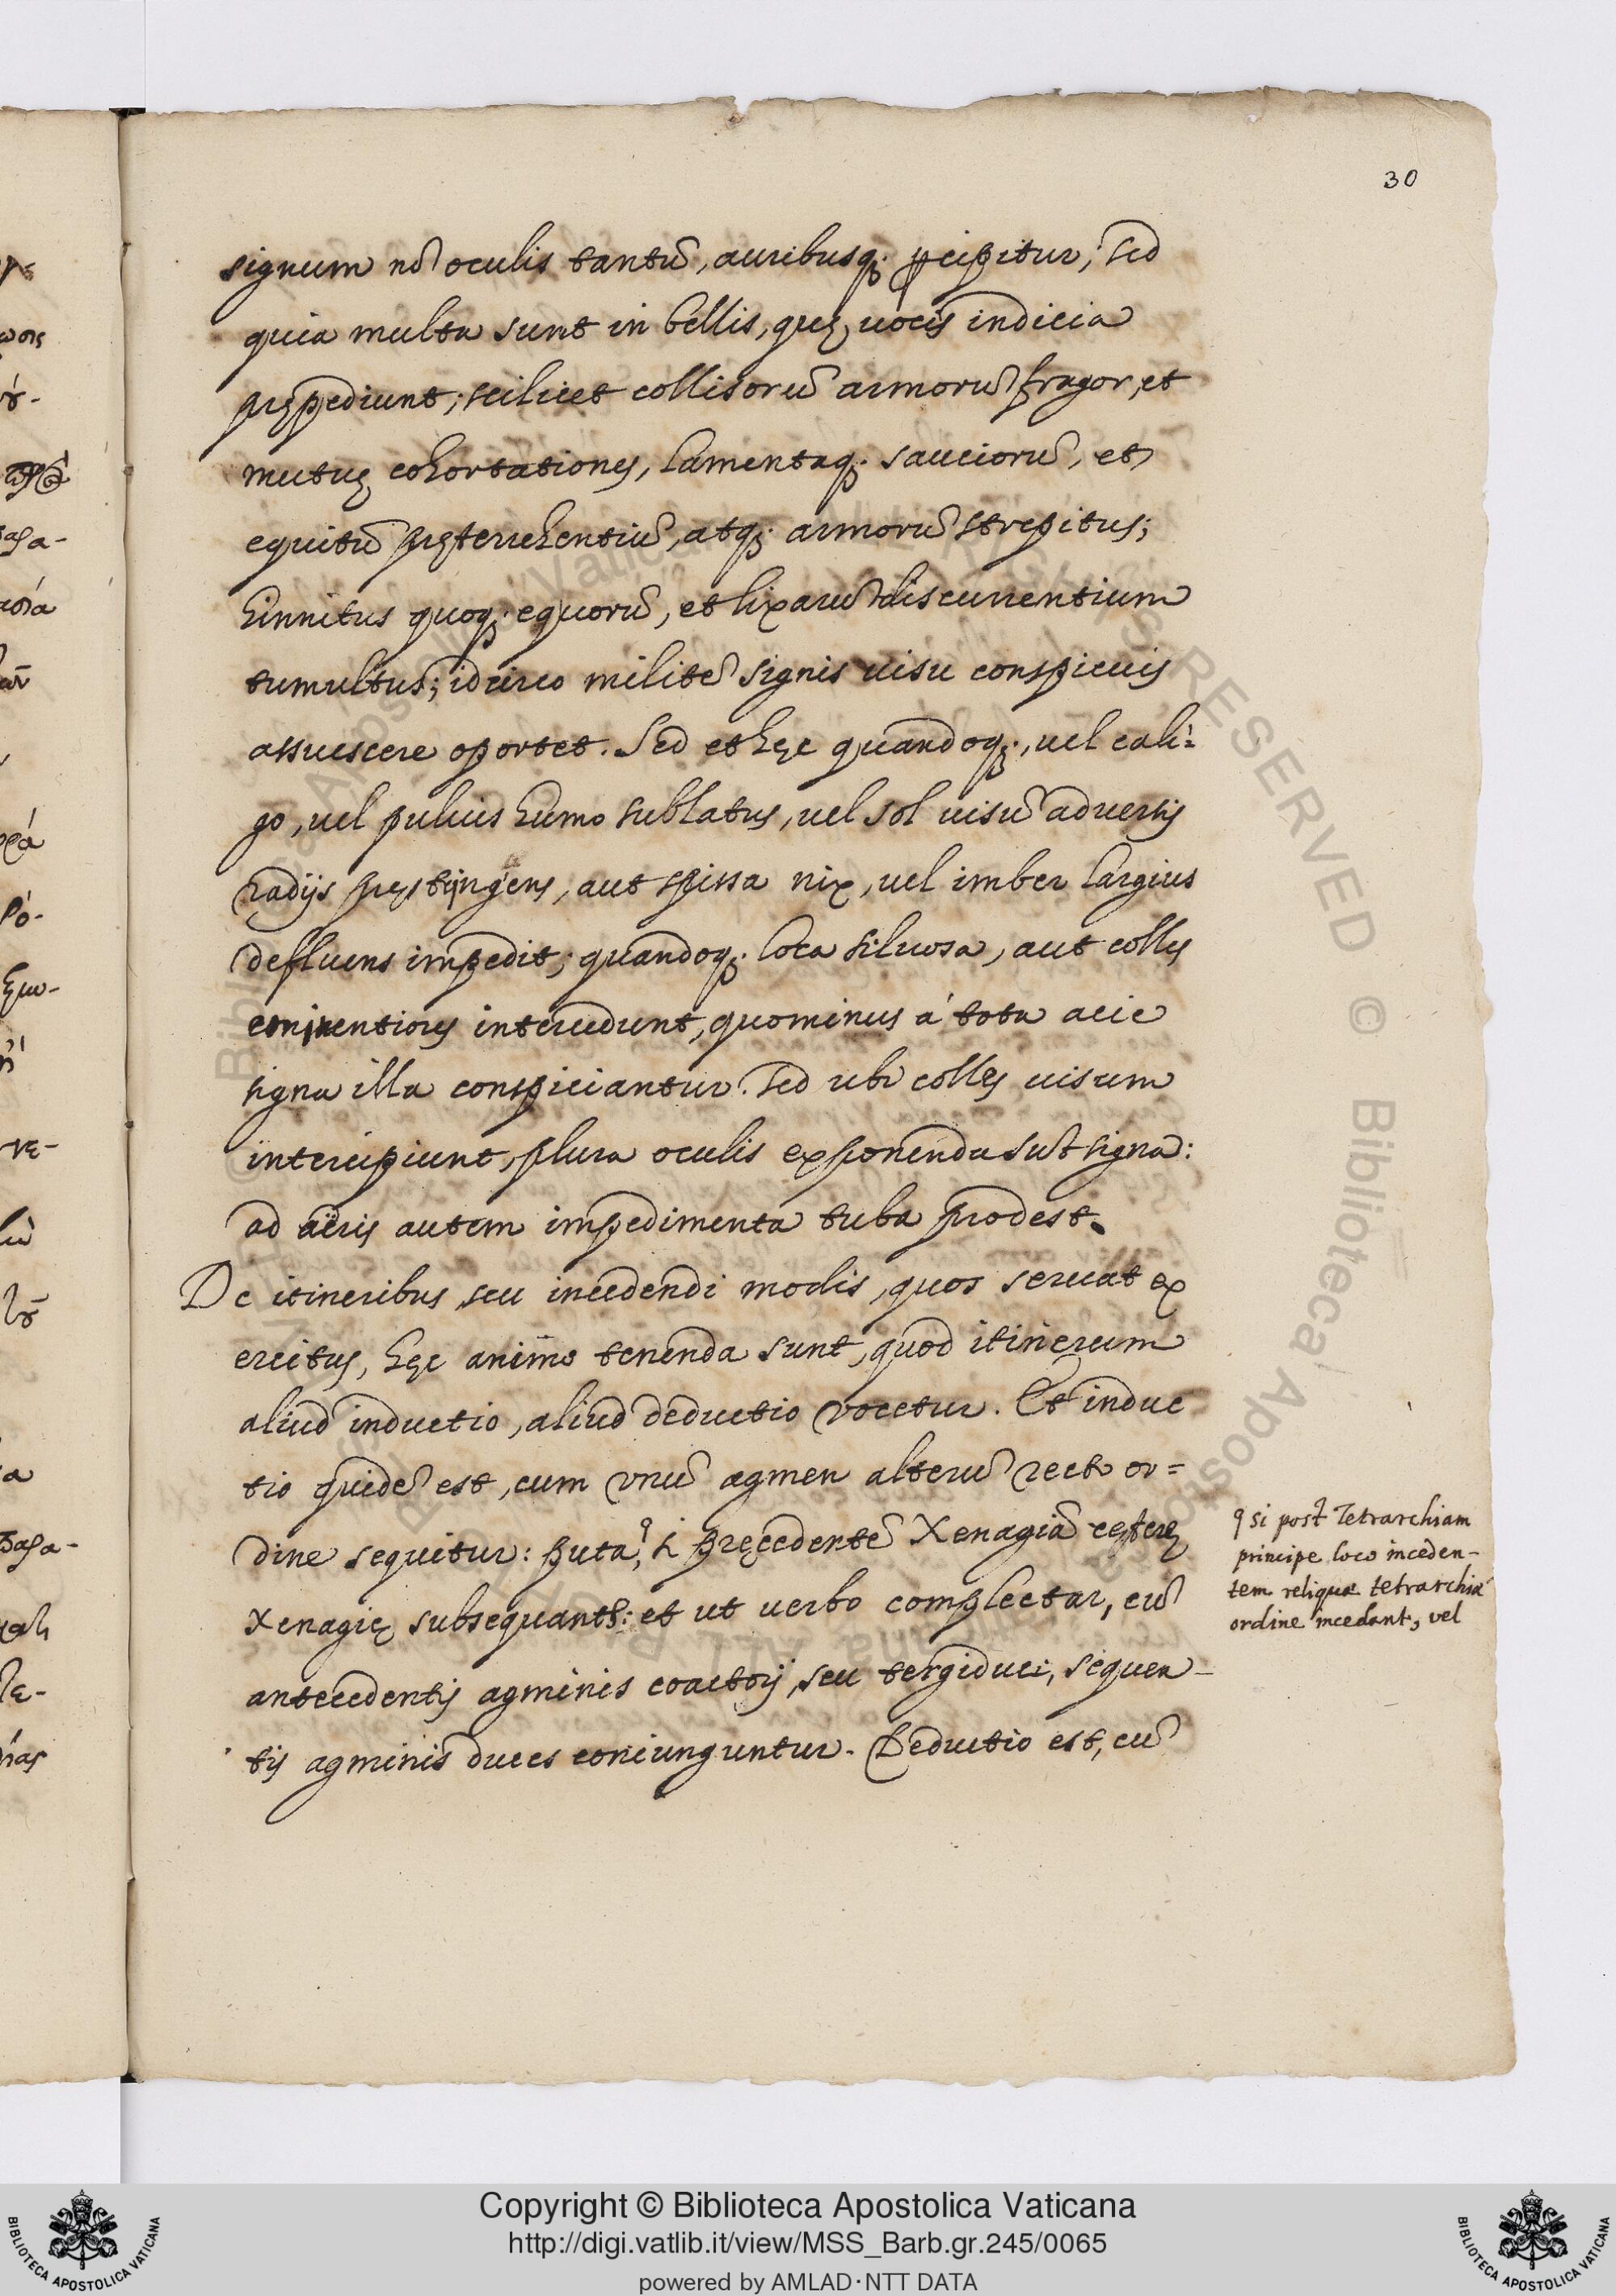 30
signum nō oculis tantū, auribusq; ꝑcipitur; sed
quia multa sunt in bellis, quę uocis indicia
prępediunt; scilicet collisorū armorū fragor, et
mutuę cohortationes, lamentaq; sauciorū, et
equitū pręteruehentiū, atq; armorū strepitus;
hinnitus quoq; equorū, et lixarū discurrentium
tumultus; idcirco militē signis uisu conspicuis
assuescere oportet. Sed et hęc quandoq;, uel cali=
go, uel puluis humo sublatus, uel sol uisū aduersis
radijs pręstingens, aut spissa nix, uel imber largius
defluens impedit; quandoq; loca siluosa, aut colles
eminentiores intercedunt, quominus à tota acie
signa illa conspiciantur. Sed ubi colles uisum
intercipiunt, plura oculis exponenda sūt signa:
ad aëris autem impedimenta tuba prodest.
De itineribus, seu incedendi modis, quos seruat ex
ercitus, hęc animo tenenda sunt, quod itinerum
aliud inductio, aliud deductio vocetur. Et induc
tio quidē est, cum vnū agmen alterū recto or=
dine sequitur: puta, si pręcedentē Xenagiā ceterę
Xenagię subsequantr: et ut uerbo complectar, cū
antecedentis agminis coactori, seu tergiduci, sequen-
tis agminis duces coniunguntur. Deductio est, cū
si post Tetrarchiam
principe loco inceden-
tem reliquæ tetrarchiæ
ordine incedant, vel
Copyright © Biblioteca Apostolica Vaticana
http://digi.vatlib.it/view/MSS_Barb.gr.245/0065
powered by AMLAD·NTT DATA
BIBLIOTECA APOSTOLICA VATICANA
BIBLIOTECA APOSTOLICA VATICANA